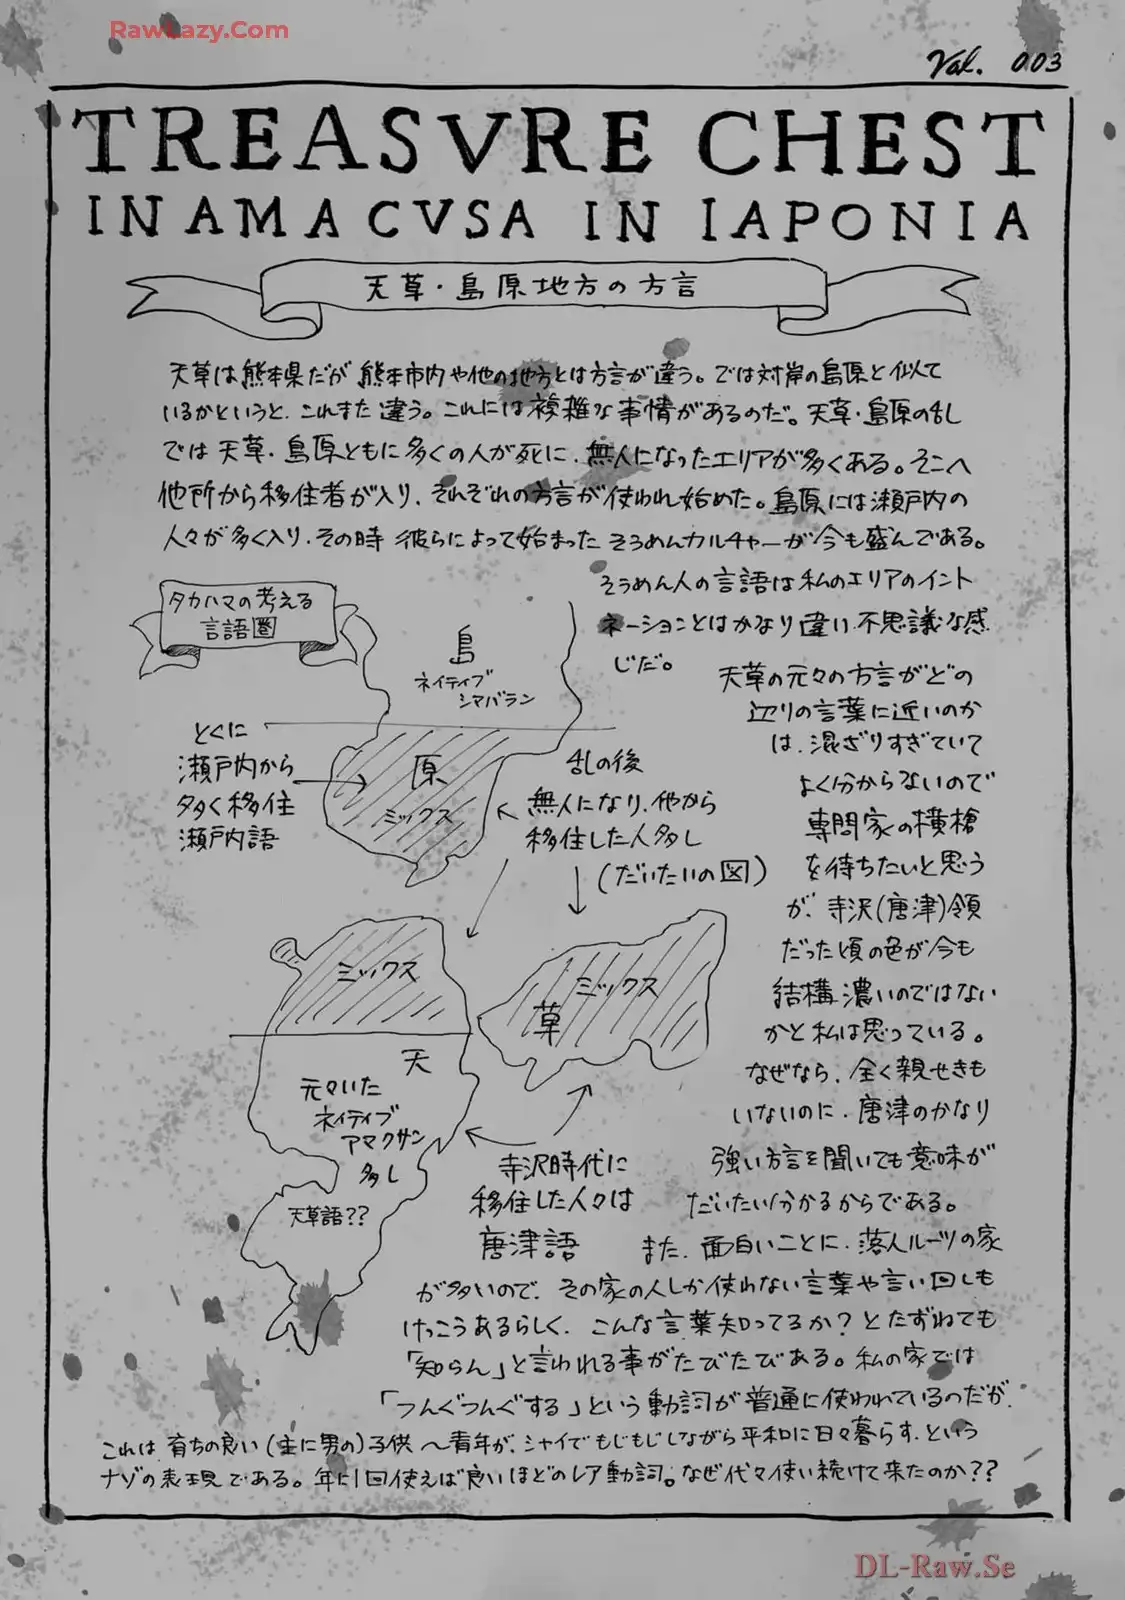 RawLazy.Com
Val. 003
TREASVRE CHEST
IN AMACVSA IN IAPONIA
天草・島原地方の方言
天草は熊本県だが熊本市内や他の地方とは方言が違う。では対岸の島原と似て
いるかというと、これまた違う。これには複雑な事情があるのだ。天草・島原の乱
では天草・島原ともに多くの人が死に、無人になったエリアが多くある。そこへ
他所から移住者が入り、それぞれの方言が使われ始めた。島原には瀬戸内の
人々が多く入り、その時彼らによって始まったそうめんカルチャーが今も盛んである。
そうめん人の言語は私のエリアのイント
ネーションとはかなり違い不思議な感
じだ。
タカハマの考える
言語圏
島
ネイティブ
シマバラン
とくに
瀬戸内から
多く移住
瀬戸内語
原
ミックス
乱の後
無人になり、他から
移住した人多し
(だいたいの図)
天草の元々の方言がどの
辺りの言葉に近いのか
は、混ざりすぎていて
よく分からないので
専門家の横槍
を待ちたいと思う
が、寺沢(唐津)領
だった頃の色が今も
結構濃いのではない
かと私は思っている。
なぜなら、全く親せきも
いないのに、唐津のかなり
強い方言を聞いても意味が
だいたい分かるからである。
ミックス
ミックス
草
天
元々いた
ネイティブ
アマクサン
多し
天草語??
寺沢時代に
移住した人々は
唐津語
また、面白いことに、落人ルーツの家
が多いので、その家の人しか使わない言葉や言い回しも
けっこうあるらしく、こんな言葉知ってるか？とたずねても
「知らん」と言われる事がたびたびある。私の家では
「つんぐつんぐする」という動詞が普通に使われているのだが、
これは育ちの良い(主に男の)子供〜青年が、シャイでもじもじしながら平和に日々暮らす、という
ナゾの表現である。年に1回使えば良いほどのレア動詞。なぜ代々使い続けて来たのか??
DL-Raw.Se